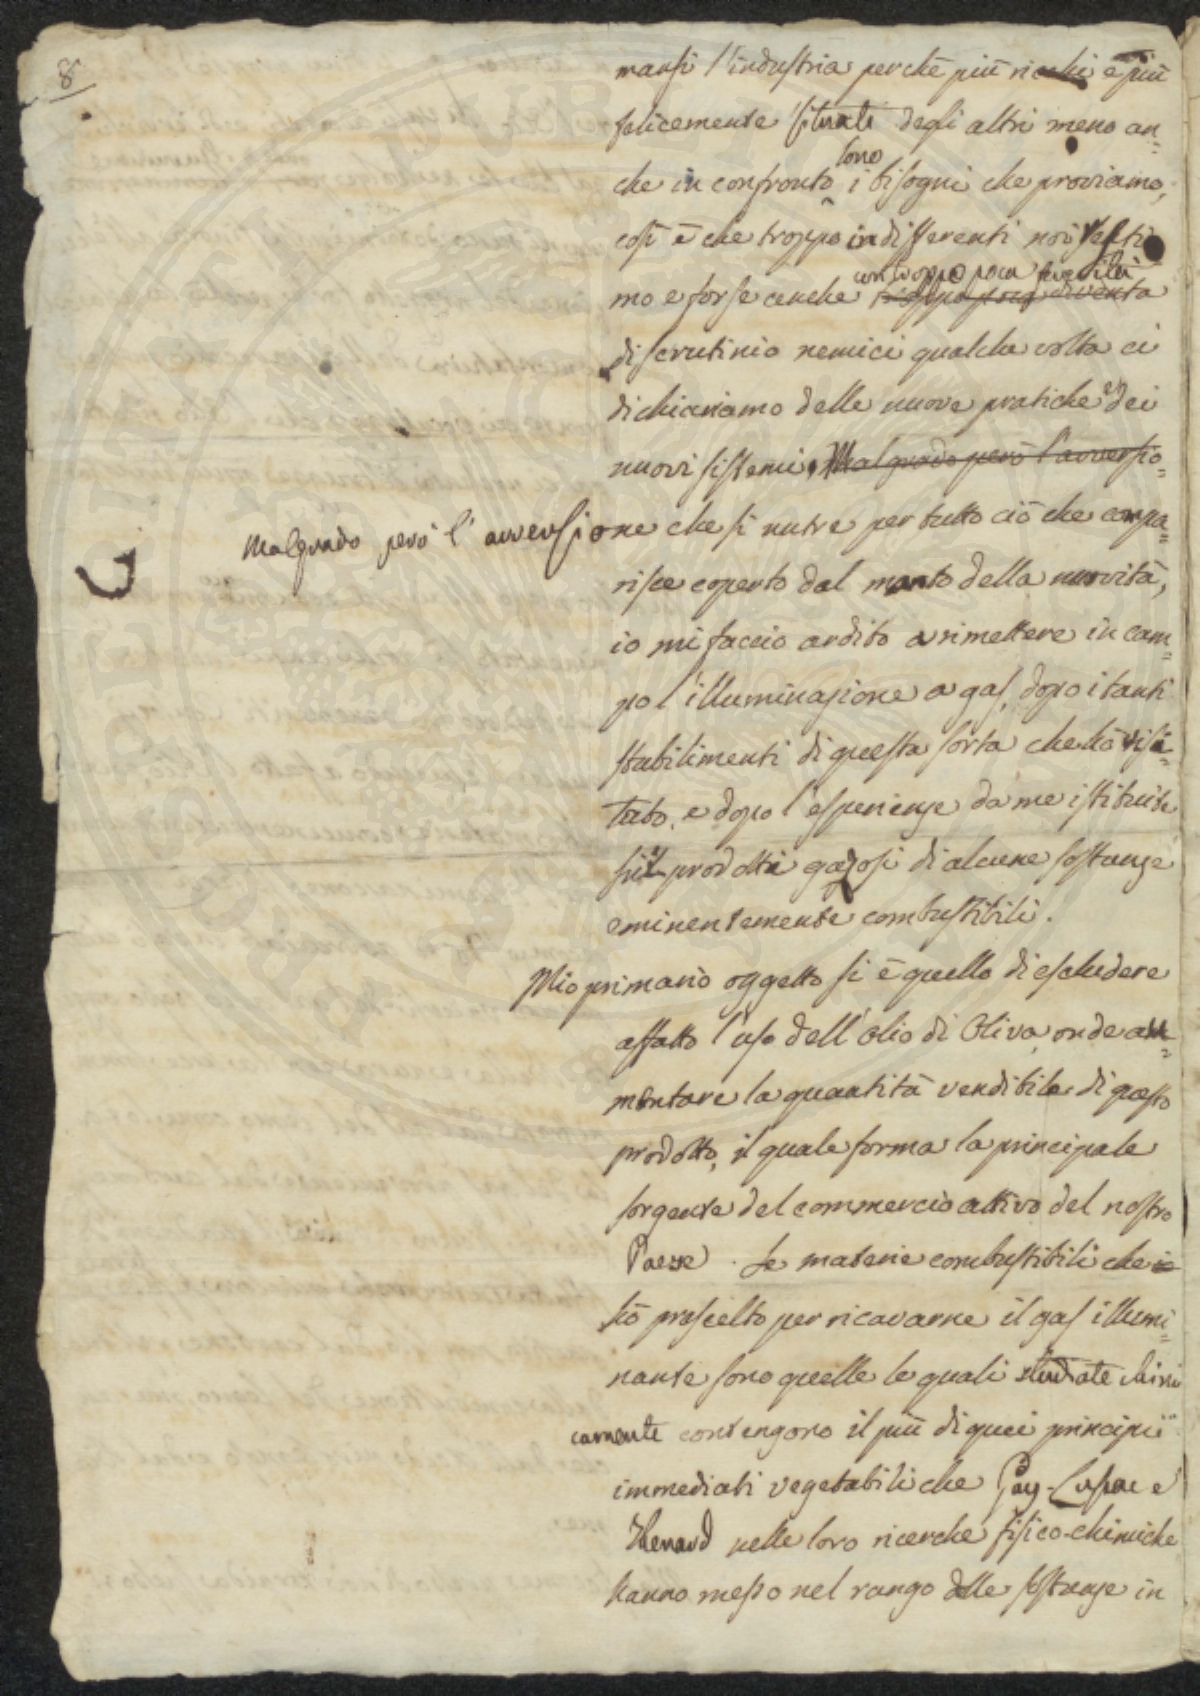 8
mansi l'industria perchè più ricchi e più
felicemente situati degli altri meno an=
che in confronto sono i bisogni che proviamo,
così è che troppo indifferenti noi restia
mo e forse anche con troppo poca severità troppo poca diventa
di scrutinio nemici qualche volta ci
dichiariamo delle nuove pratiche e dei
nuovi sistemi. Malgrado però l'avversio=
Malgrado però l'avversione che si nutre per tutto ciò che compa=
risce coperto dal manto della novità,
io mi faccio ardito a rimettere in cam=
po l'illuminazione a gas, dopo i tanti
stabilimenti di questa sorta che hò visi=
tato, e dopo l'esperienze da me istituite
sui prodotti gazosi di alcune sostanze
eminentemente combustibili.
Mio primario oggetto si è quello di escludere
affatto l'uso dell'olio di Oliva onde au=
mentare la quantità vendibile di questo
prodotto, il quale forma la principale
sorgente del commercio attivo del nostro
Paese. Le materie combustibili che io
hò prescelto per ricavarne il gas illumi=
nante sono quelle le quali studiate chimi
camente contengono il più di quei principii
immediati vegetabili che Gay-Lusac e
Thenard nelle loro ricerche fisico-chimiche
hanno messo nel rango delle sostanze in